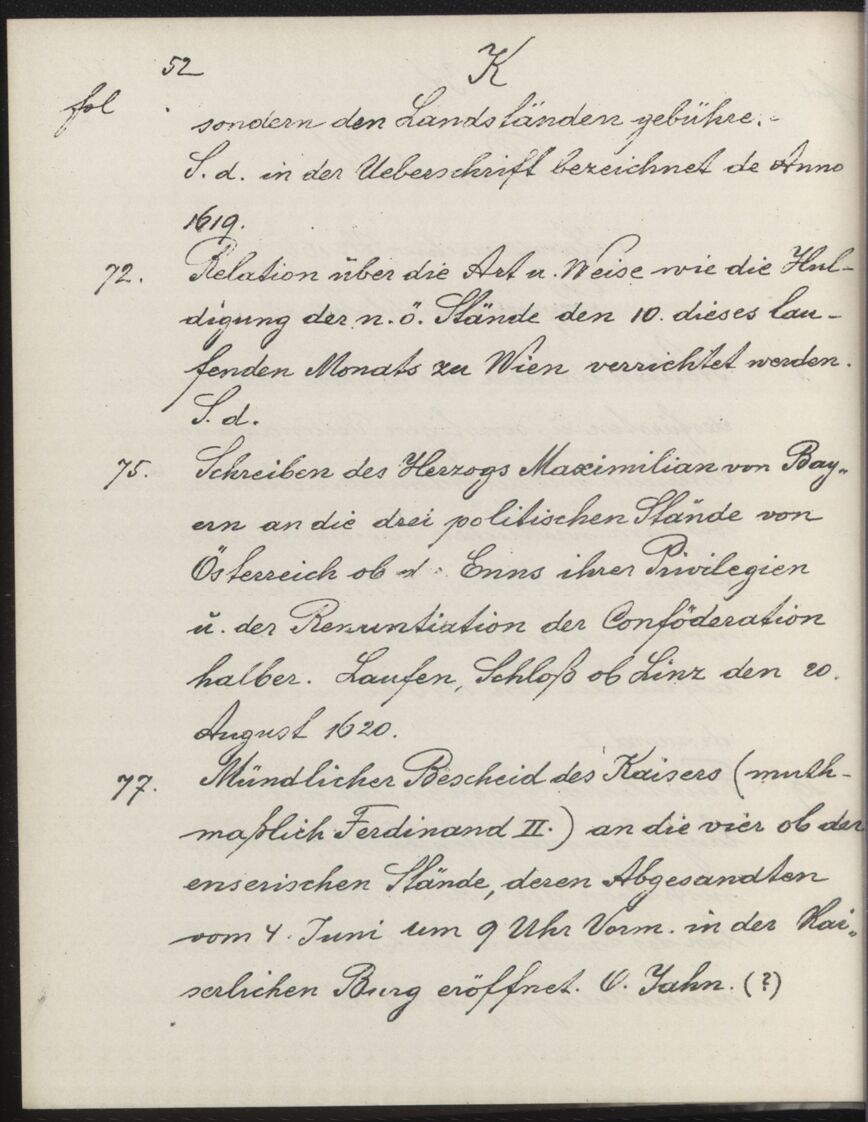 52 K
fol
sondern den Landständen gebühre.-
S. d. in der Ueberschrift bezeichnet de Anno
1619.
72. Relation über die Art u. Weise wie die Hul-
digung der n. ö. Stände den 10. dieses lau-
fenden Monats zu Wien verrichtet werden.
S. d.
75. Schreiben des Herzogs Maximilian von Bay„
ern an die drei politischen Stände von
Österreich ob d. Enns ihrer Privilegien
u. der Renuntiation der Conföderation
halber. Laufen, Schloß ob Linz den 20.
August 1620.
77. Mündlicher Bescheid des Kaisers (muth-
maßlich Ferdinand II.) an die vier ob der
enserischen Stände, deren Abgesandten
vom 4. Juni um 9 Uhr Vorm. in der Kai„
serlichen Burg eröffnet. O. Jahn. (?)